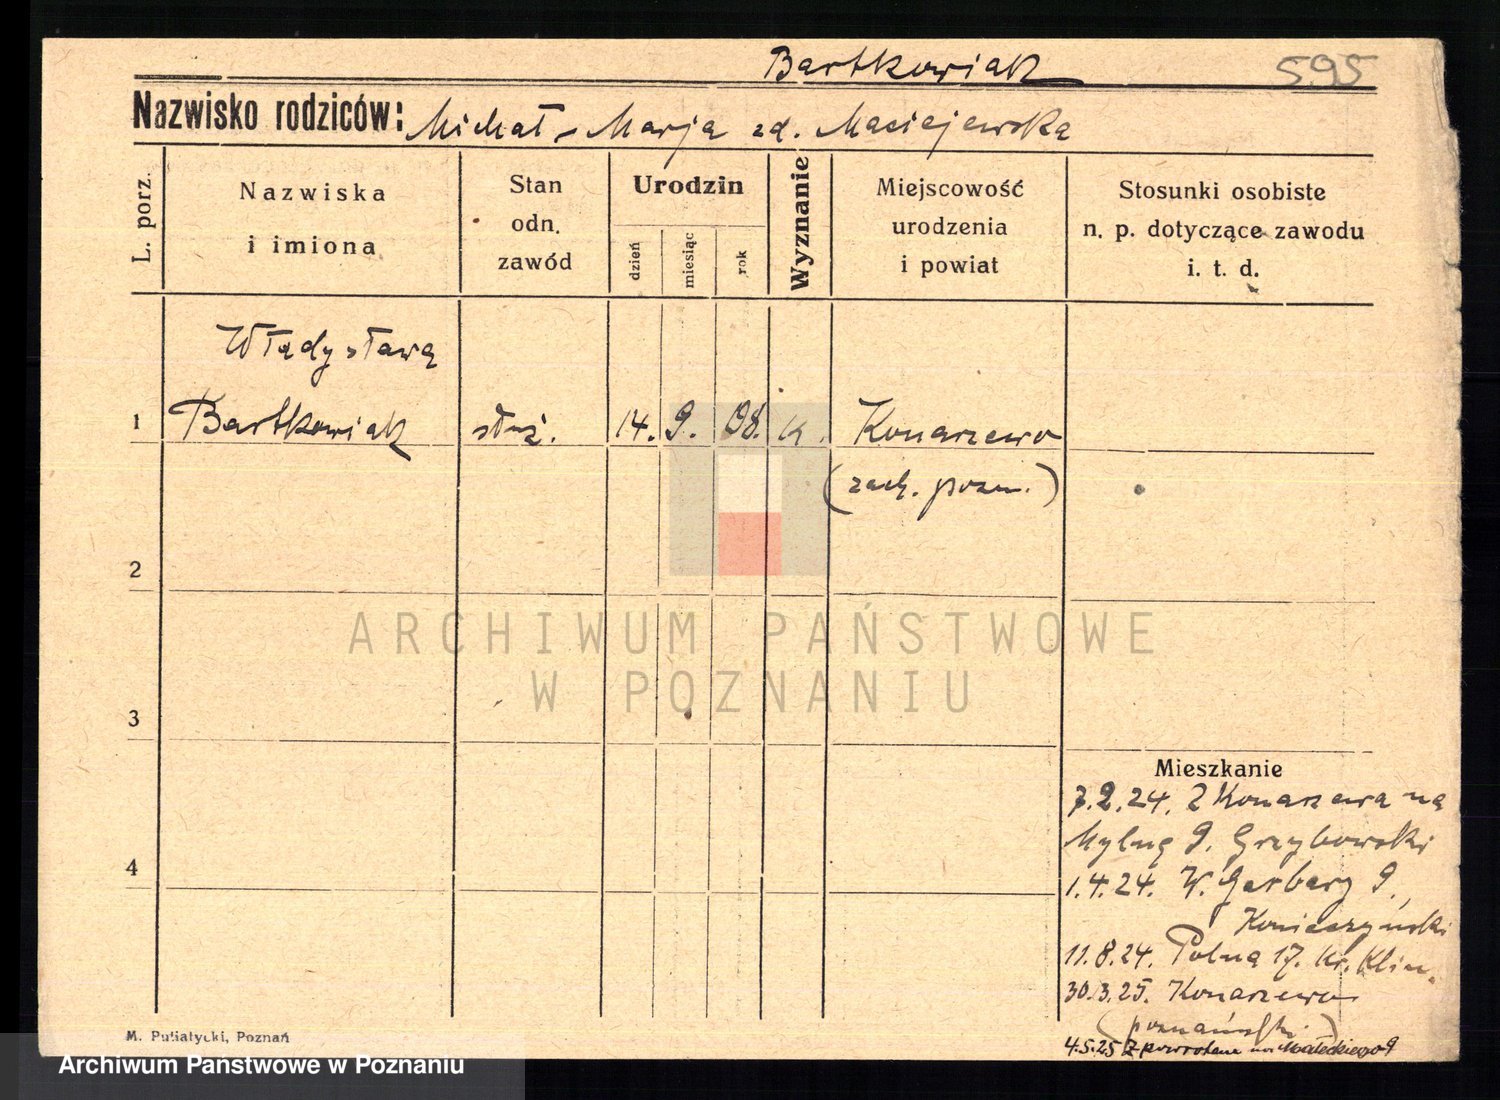 Bartkowiak
595
Nazwisko rodziców: Michał - Marja zd. Maciejewska
L. porz.
Nazwiska i imiona
Stan odn. zawód
Urodzin
dzień
miesiąc
rok
Wyznanie
Miejscowość urodzenia i powiat
Stosunki osobiste n. p. dotyczące zawodu i. t. d.
Władysława
1 Bartkowiak służ. 14. 9. 98. k. Konarzewo
(zach. pozn.)
2
3
4
ARCHIWUM PAŃSTWOWE
W POZNANIU
Mieszkanie
7.2.24. Z Konarzewa na
Mylną 9. Grzybowski
1.4.24. W. Garbary 9,
Konieczyński
11.8.24. Polna 17. Kr. Klin.
30.3.25. Konarzewo
(poznański)
4.5.25 Z powrotem na Małeckiego 9
M. Putiatycki, Poznań
Archiwum Państwowe w Poznaniu